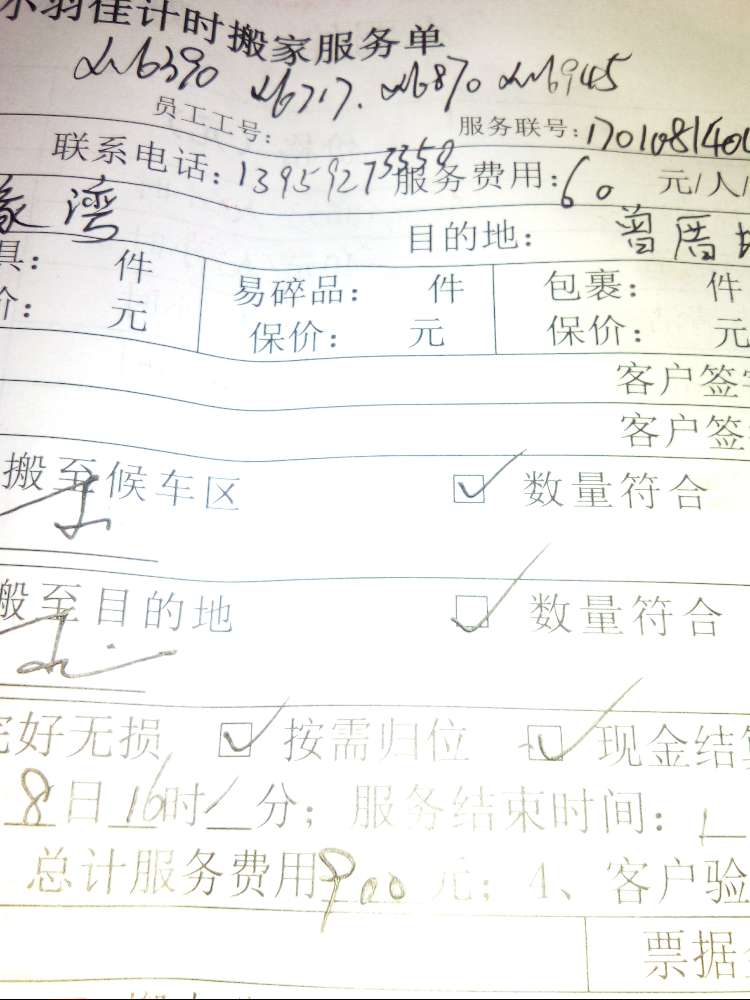 羽佳计时搬家服务单
员工工号:
服务联号: 1701081400
联系电话: 13959273359 服务费用: 60 元/人/
湾 目的地: 曾厝
具: 件 易碎品: 件 包裹: 件
价: 元 保价: 元 保价: 元
客户签字
客户签
搬至候车区 ☑ 数量符合
搬至目的地 ☑ 数量符合
完好无损 ☑ 按需归位 ☑ 现金结算
8日16时/分; 服务结束时间:
总计服务费用900元; 4、客户验
票据